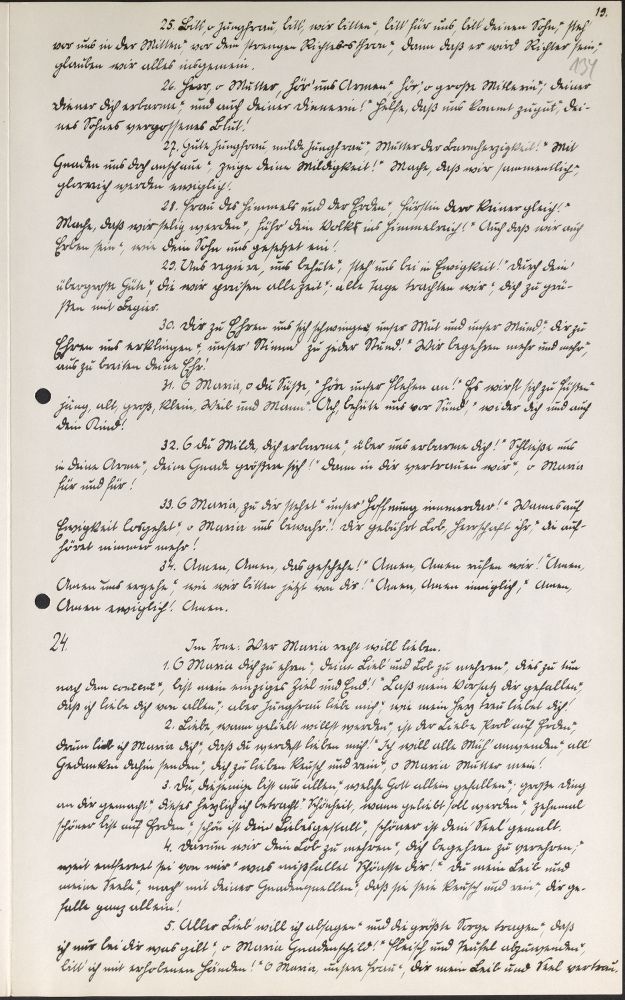 19.
134
25. Bitt, o Jungfrau, bitt, wir bitten", bitt für uns, bitt deinen Sohn," steh
vor uns in der Mitten," vor dem strengen Richtersthron", dann daß er wird Richter sein,"
glauben wir alles insgemein.
26. Herr, o Mutter, hör' uns Armen" hör, o große Mittlerin," deiner
Diener dich erbarme," und auch deiner Dienerin!" Helfe, daß uns kommt zugut, dei-
nes Sohnes vergossenes Blut!
27. Gute Jungfrau, milde Jungfrau", Mutter der Barmherzigkeit!" Mit
Gnaden uns doch anschaue", zeige deine Mildigkeit!" Mache, daß wir sammentlich,"
glorreich werden ewiglich!
28. Frau des Himmels und der Erden", Fürstin dero keiner gleich!"
Mache, daß wir selig werden", führ' dein Volk ins Himmelreich!" Auch daß wir auch
Erben sein", wie dein Sohn uns gesetzet ein!
29. Uns regiere, uns behüte", steh' uns bei in Ewigkeit!" Durch dein'
übergroße Güte," die wir preisen allezeit"; alle Tage trachten wir", dich zu grü-
ßen mit Begier.
30. Dir zu Ehren uns sich schwinget unser Mut und unser Mund," dir zu
Ehren uns erklingen", unser' Stimm' zu jeder Stund'." Wir begehren mehr und mehr,"
auszubreiten deine Ehr'.
31. O Maria, o du Süße," höre unser Flehen an!" Es wirft sich zu Füßen"
jung, alt, groß, klein, Weib und Mann". Ach behüte uns vor Sünd'," wider dich und auch
dein Kind!
32. O du Milde, dich erbarme", über uns erbarme dich!" Schließe uns
in deine Arme", deine Gnad' größere sich!" Dann in dir vertrauen wir", o Maria
für und für!
33. O Maria, zu dir stehet" unser' Hoffnung immerdar!" Wann's auch
Ewigkeit losgehet", o Maria uns bewahr'! Dir gebührt Lob, Herrschaft, Ehr'," die auf-
höret nimmer mehr!
34. Amen, Amen, das geschehe!" Amen, Amen rufen wir!" Amen,
Amen uns ergehe", wie wir bitten jetzt von dir!" Amen, Amen inniglich," Amen,
Amen ewiglich! Amen.
24. Im Tone: Wer Maria recht will lieben.
1. O Maria dich zu ehren", deine Lieb' und Lob zu mehren", dies zu tun
nach dem content", bist mein einziges Ziel und End'!" Laß mein Vorsatz dir gefallen,"
daß ich liebe dich von allen"; aber Jungfrau liebe mich," wie mein Herz treu liebet dich!
2. Liebe, wann geliebt willst werden", ist der Liebe Prob' auf Erden,"
drum lieb' ich Maria dich", daß du werdest lieben mich!" Ich will alle Müh' anwenden," all'
Gedanken dahin senden", dich zu lieben keusch und rein", o Maria Mutter mein!
3. Du, diejenige bist aus allen," welche Gott allein gefallen"; große Ding'
an dir gemacht", dieses herzlich ich betracht'." Schönheit, wann geliebt soll werden", zehenmal
schöner bist auf Erden", schön ist dein' Leibesgestalt", schöner ist dein' Seel' gemalt.
4. Darum wir dein Lob zu mehren," dich begehren zu verehren,"
weit entfernet sei von mir" was mißfallet Schönste dir!" Du mein Leib und
meine Seele", mach' mit deiner Gnadenquellen", daß sie sein keusch und rein", dir ge-
falle ganz allein!
5. Aller Lieb' will ich absagen" und die größte Sorge tragen", daß
ich nur bei dir was gilt", o Maria Gnadenschild!" Fleisch und Teufel abzuwenden",
bitt' ich mit erhobenen Händen!" O Maria, unsere Frau", dir mein Leib und Seel' vertrau.